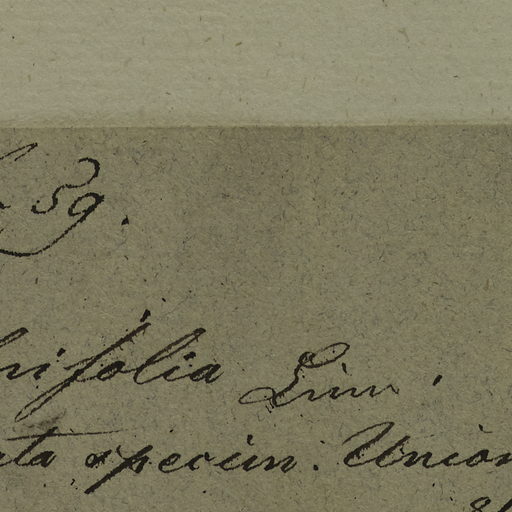 59.
rifolia Linn.
ata specim. Union